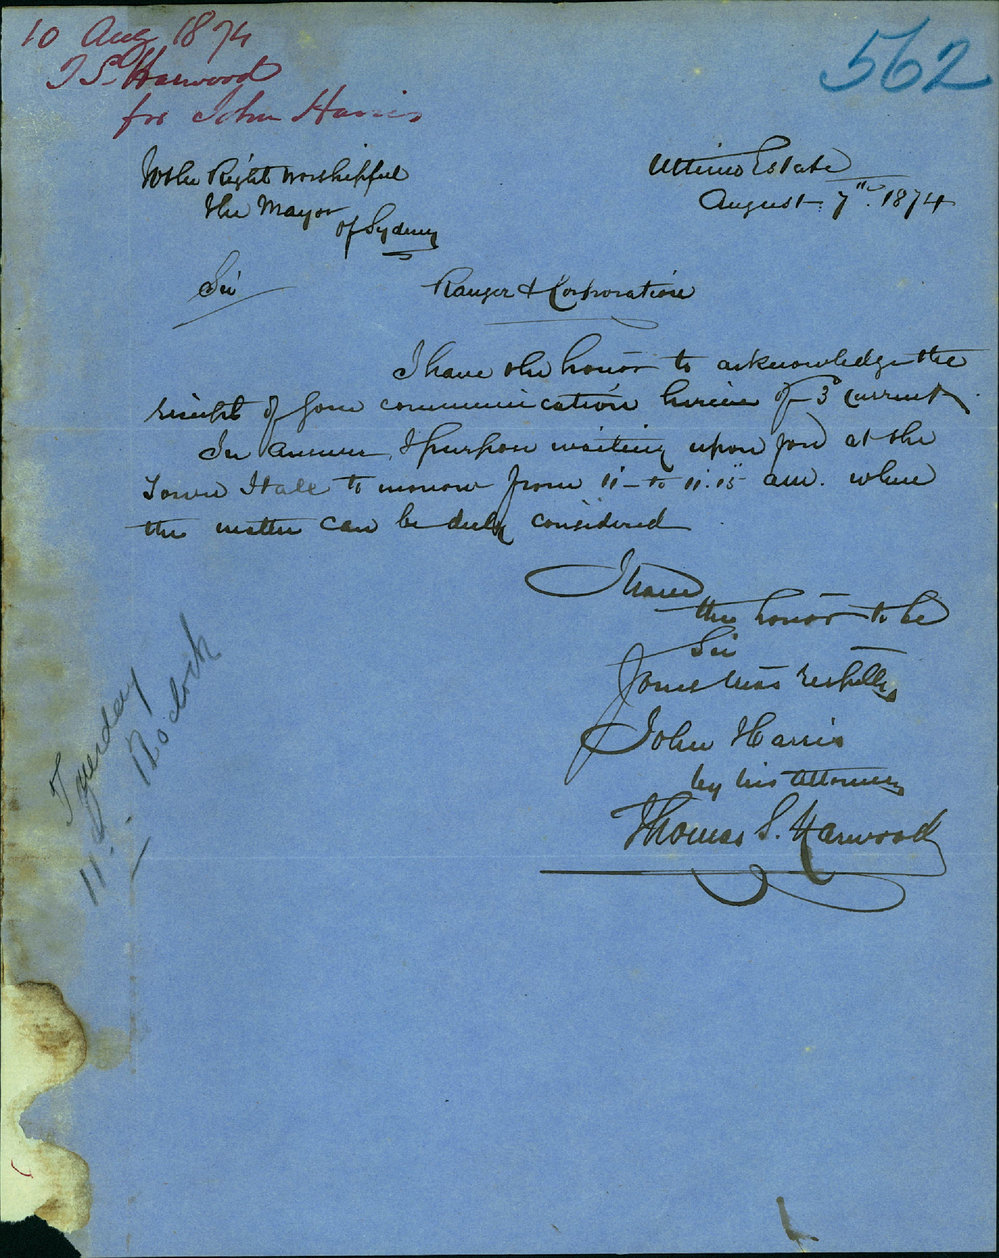 10 Aug 1874
T S Harwood
for John Harris
562
To the Right Worshipful
the Mayor
of Sydney
Ultimo Estate
August 7th 1874
Sir
Ranger & Corporation
I have the honor to acknowledge the
receipt of your communication herein of 3d current.
In answer, I purpose waiting upon you at the
Town Hall to morrow from 11 - to 11.15 am. when
the matter can be duly considered
I have
the honor to be
Sir
Your Mos
John Harris
by his Attorney
Thomas S. Harwood
Tuesday
11 - o'clock